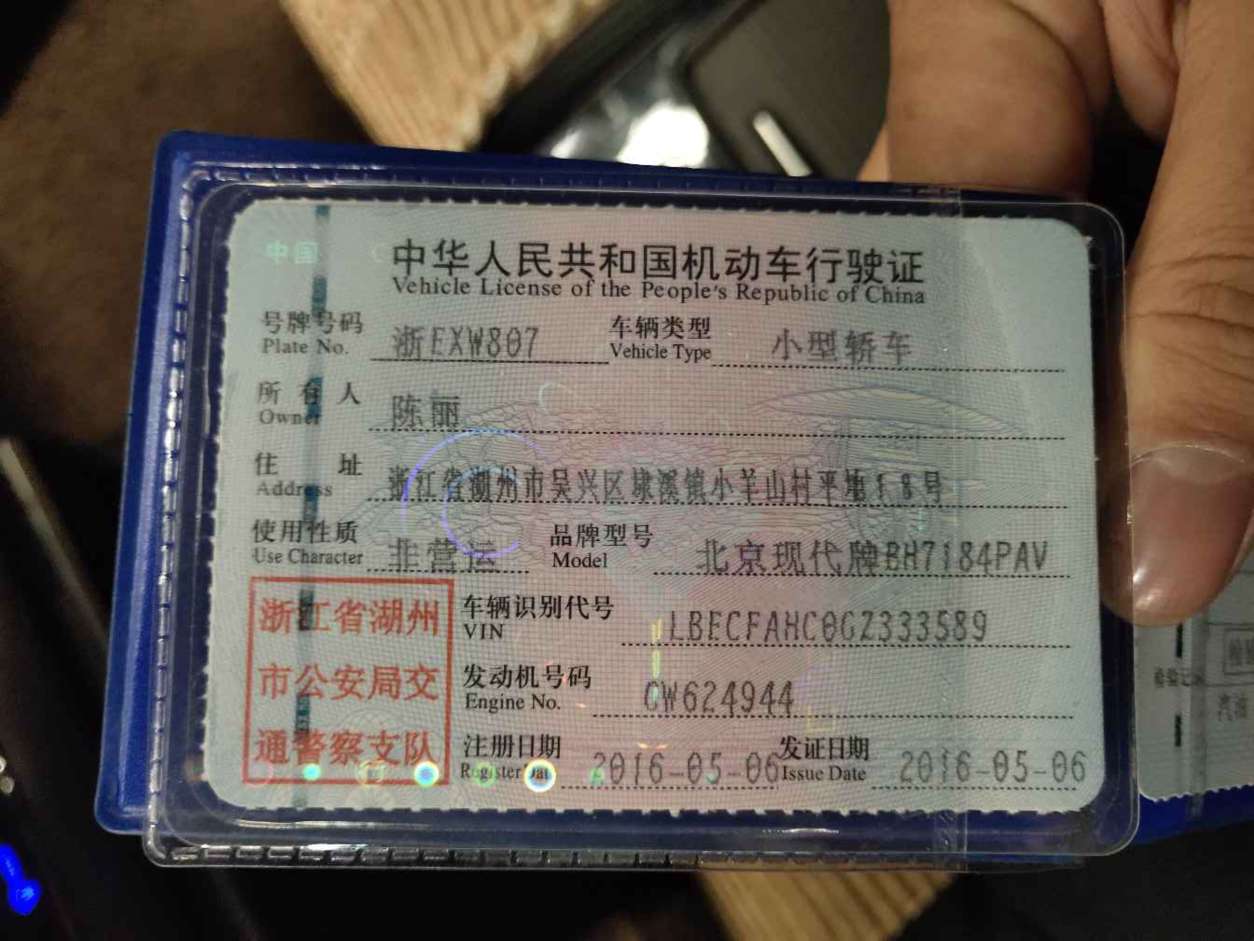 中国
中华人民共和国机动车行驶证
Vehicle License of the People's Republic of China
号牌号码 浙EXW807 车辆类型 小型轿车
Plate No. Vehicle Type
所有人 陈丽
Owner
住址 浙江省湖州市吴兴区埭溪镇小羊山村平地18号
Address
使用性质 非营运 品牌型号 北京现代牌BH7184PAV
Use Character Model
浙江省湖州
市公安局交
通警察支队
车辆识别代号 LBECFAHC0GZ333589
VIN
发动机号码 GW624944
Engine No.
注册日期 2016-05-06 发证日期 2016-05-06
Register Date Issue Date
检验记
汽油